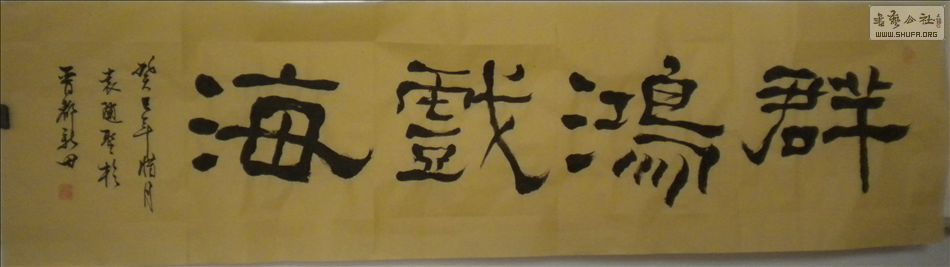 群鴻戲海
癸巳年腊月
袁随聖於
晋都新田
书艺公社
WWW.SHUFA.ORG